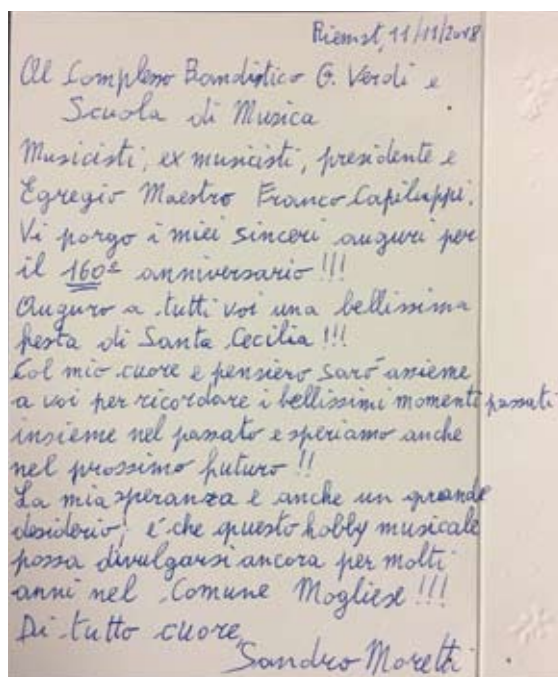 Riemst, 11/11/2018
Al Complesso Bandistico G. Verdi e
Scuola di Musica
Musicisti, ex musicisti, presidente e
Egregio Maestro Franco Capiluppi.
Vi porgo i miei sinceri auguri per
il 160° anniversario !!!
Auguro a tutti voi una bellissima
festa di Santa Cecilia !!!
Col mio cuore e pensiero saró assieme
a voi per ricordare i bellissimi momenti passati
insieme nel passato e speriamo anche
nel prossimo futuro !!
La mia speranza e anche un grande
desiderio, é che questo hobby musicale
possa divulgarsi ancora per molti
anni nel Comune Mogliese !!!
Di tutto cuore,
Sandro Moretti